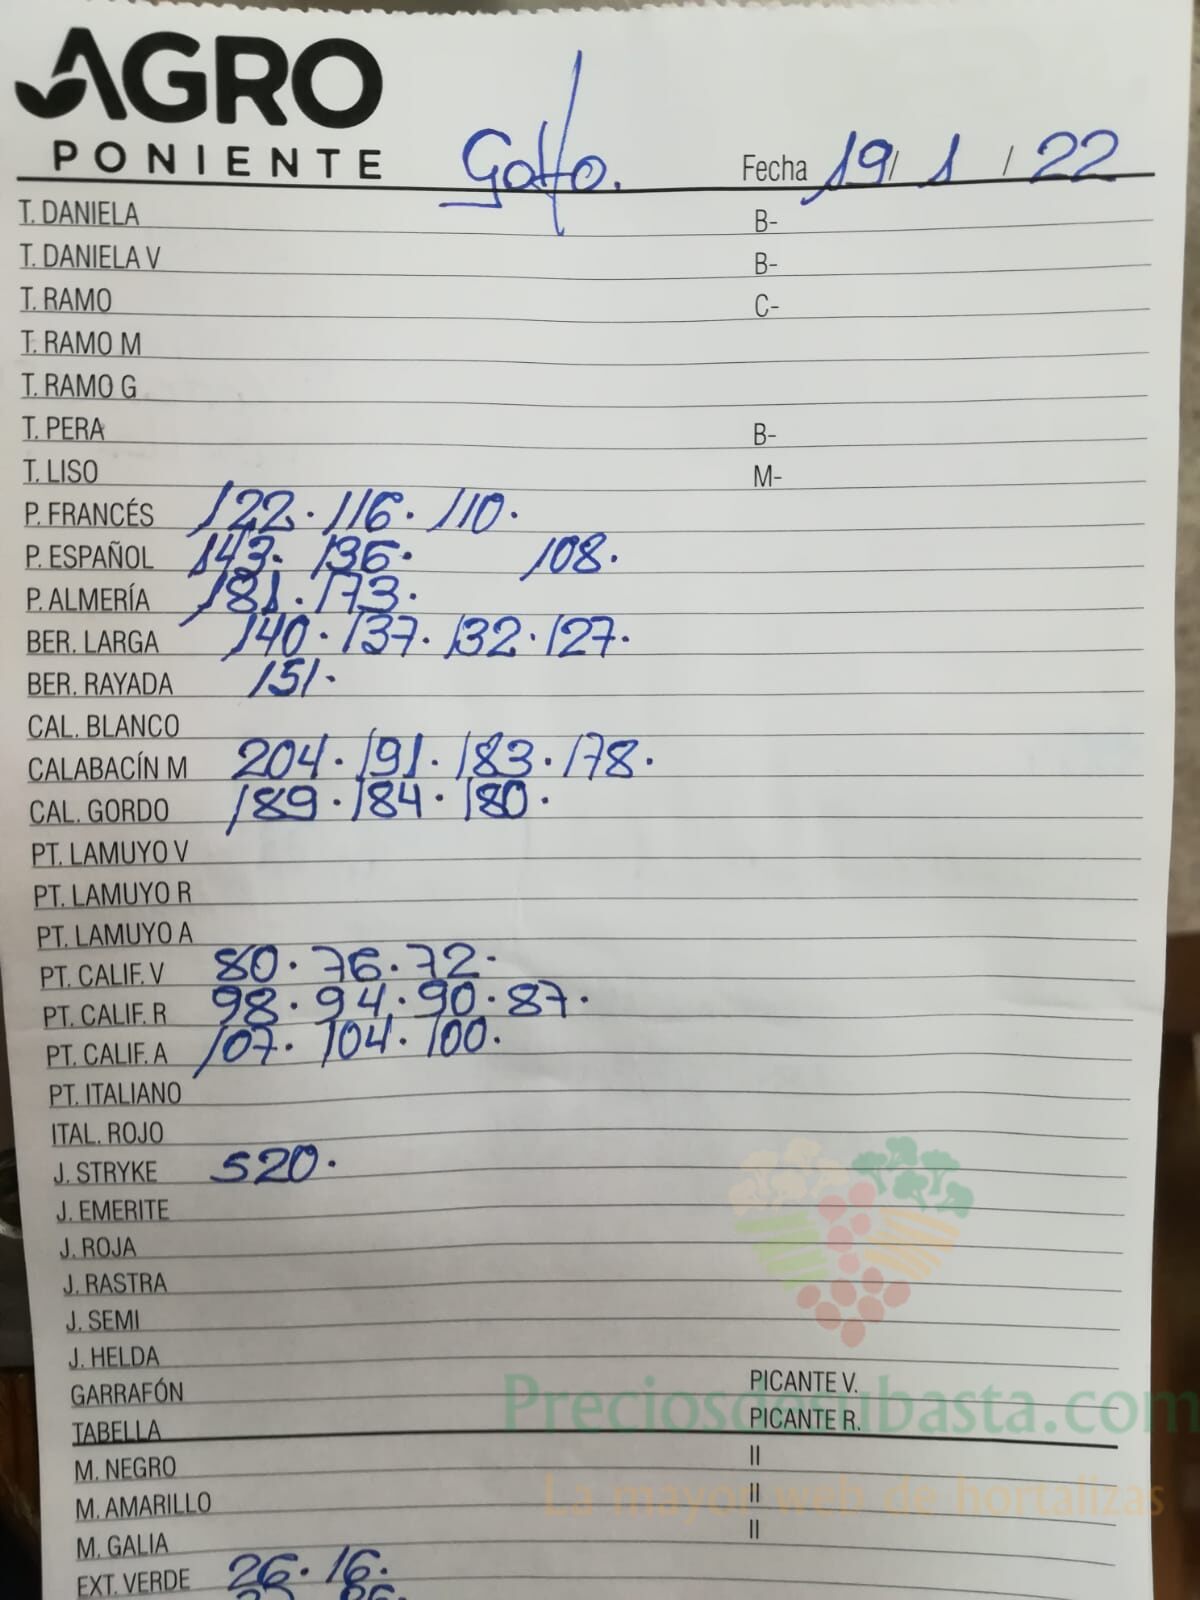 AGRO
PONIENTE
Golfo. Fecha 19/ 1 / 22
T. DANIELA B-
T. DANIELA V B-
T. RAMO C-
T. RAMO M
T. RAMO G
T. PERA B-
T. LISO M-
P. FRANCÉS 122. 116. 110.
P. ESPAÑOL 143. 136. 108.
P. ALMERÍA 181. 173.
BER. LARGA 140. 137. 132. 127.
BER. RAYADA 151.
CAL. BLANCO
CALABACÍN M 204. 191. 183. 178.
CAL. GORDO 189. 184. 180.
PT. LAMUYO V
PT. LAMUYO R
PT. LAMUYO A
PT. CALIF. V 80. 76. 72.
PT. CALIF. R 98. 94. 90. 87.
PT. CALIF. A 107. 104. 100.
PT. ITALIANO
ITAL. ROJO
J. STRYKE 520.
J. EMERITE
J. ROJA
J. RASTRA
J. SEMI
J. HELDA
GARRAFÓN PICANTE V.
TABELLA PICANTE R.
Preciosdesubasta.com
M. NEGRO II
M. AMARILLO II
La mayor web de hortalizas
M. GALIA II
EXT. VERDE 26. 16.